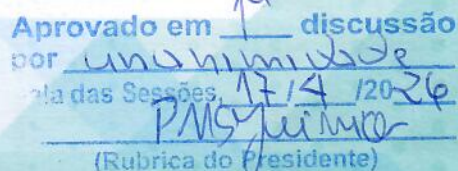 Aprovado em 1ª discussão
por unanimidade
ala das Sessões, 17/4/2026
(Rubrica do Presidente)